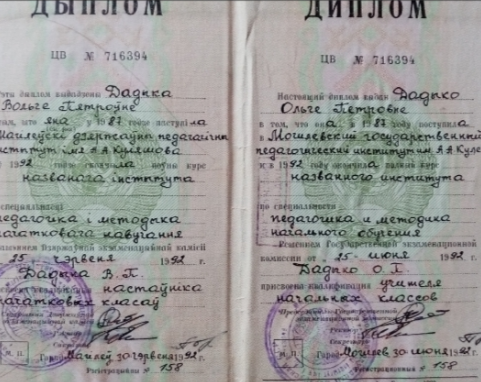 ДЫПЛОМ
ЦВ № 716394
дыплом выдадзены Дадзька
Вользе Пятроўне
том, што яна ў 1987 годзе паступіла
Магілеўскі дзяржаўны педагагічны
імя А.А. Куляшова
1992 годзе скончыла поўны курс
названага інстытута
па спецыяльнасці
педагогіка і методыка
пачатковага навучання
Дзяржаўнай экзаменацыйнай камісіі
25 чэрвеня 1992 г.
В. П.
настаўніка
пачатковых класаў
М. П. Горад Магілеў 30 чэрвеня 1992 г.
Рэгістрацыйны № 158
ДИПЛОМ
ЦВ № 716394
Настоящий диплом выдан Дадько
Ольге Петровне
в том, что она в 1987 году поступила
в Могилевский государственный
педагогический институт им. А.А. Кулешова
и в 1992 году окончила полный курс
названного института
по специальности
педагогика и методика
начального обучения
Решением Государственной экзаменационной
комиссии от 25 июня 1992 г.
Дадько О. П.
присвоена квалификация учителя
начальных классов
Председатель Государственной
экзаменационной комиссии
Ректор
Секретарь
М. П. Город Могилев 30 июня 1992 г.
Регистрационный № 158